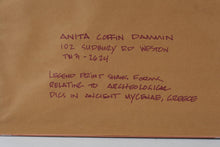 ANITA COFFIN DAMMIN
102 SUDBURY RD WESTON
TW4-2624
LEGEND PRINT SHOWS FORMS
RELATING TO ARCHEOLOGICAL
DIGS IN ANCIENT MYCENAE, GREECE